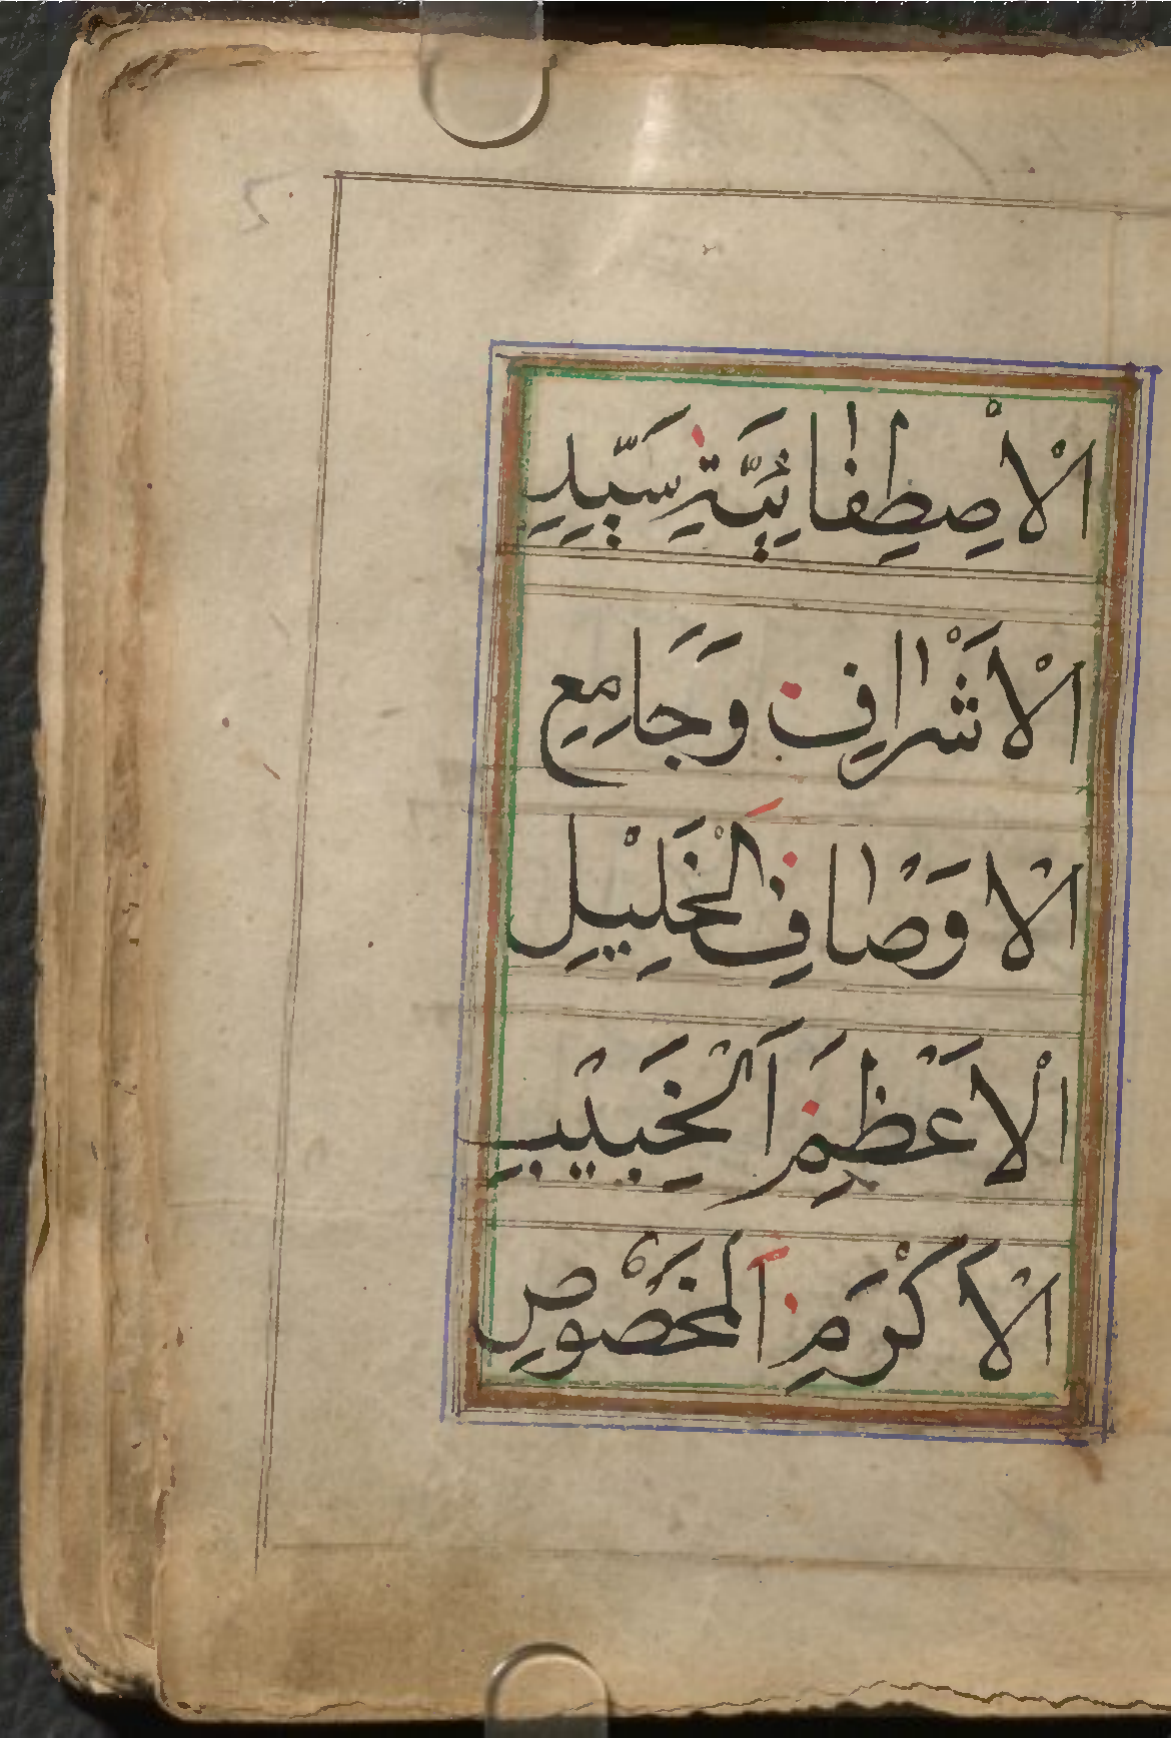 الْاصْطِفَائِيَّةِ سَيِّدِ
الْاَشْرَافِ وَجَامِعِ
الْاَوْصَافِ الْخَلِيْلِ
الْاَعْظَمِ اَلْحَبِيْبِ
الْاَكْرَمِ اَلْمَخْصُوصِ